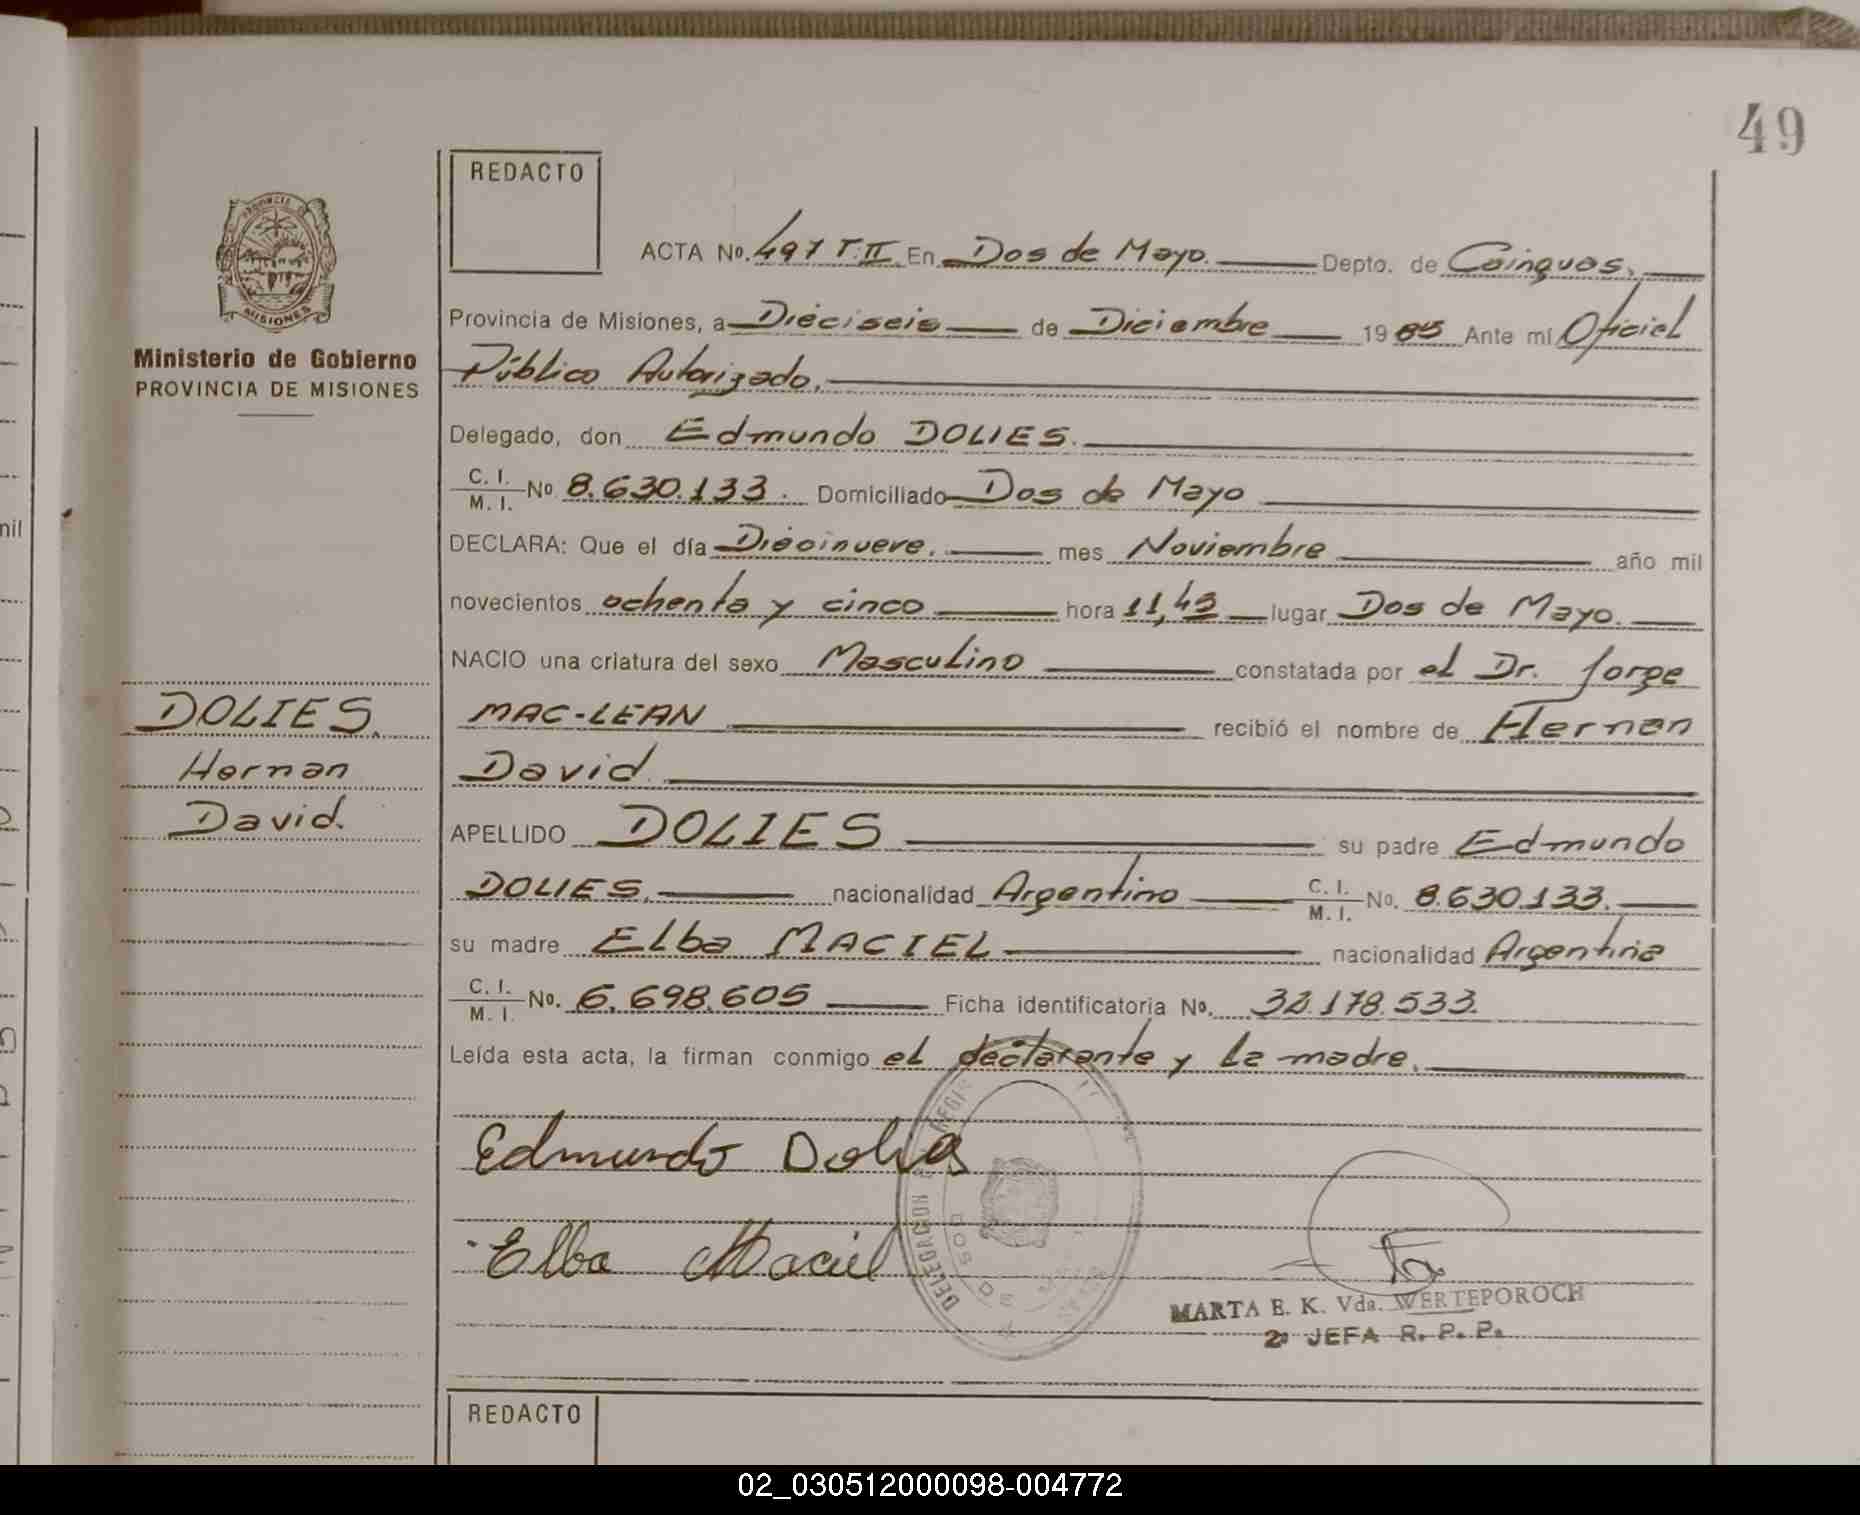 49
REDACTO
PROVINCIA DE
MISIONES
Ministerio de Gobierno
PROVINCIA DE MISIONES
ACTA No. 497 T.II En Dos de Mayo. Depto. de Cainguas,
Provincia de Misiones, a Dieciseis de Diciembre 1985 Ante mí Oficial
Público Autorizado.
Delegado, don Edmundo DOLIES.
C. I. / M. I. No 8.630.133. Domiciliado Dos de Mayo
DECLARA: Que el día Diecinueve. mes Noviembre año mil
novecientos ochenta y cinco hora 11,45 lugar Dos de Mayo.
NACIO una criatura del sexo Masculino constatada por el Dr. Jorge
MAC-LEAN recibió el nombre de Hernan
David.
APELLIDO DOLIES su padre Edmundo
DOLIES. nacionalidad Argentino C. I. / M. I. No. 8.630.133.
su madre Elba MACIEL nacionalidad Argentina
C. I. / M. I. No. 6.698.605 Ficha identificatoria No. 32.178.533.
Leída esta acta, la firman conmigo el declarante y la madre.
DOLIES.
Hernan
David.
Edmundo Dolies
Elba Maciel
DELEGACION
DOS DE
MARTA E. K. Vda. WERTEPOROCH
2a JEFA R. P. P.
REDACTO
nil
02_030512000098-004772